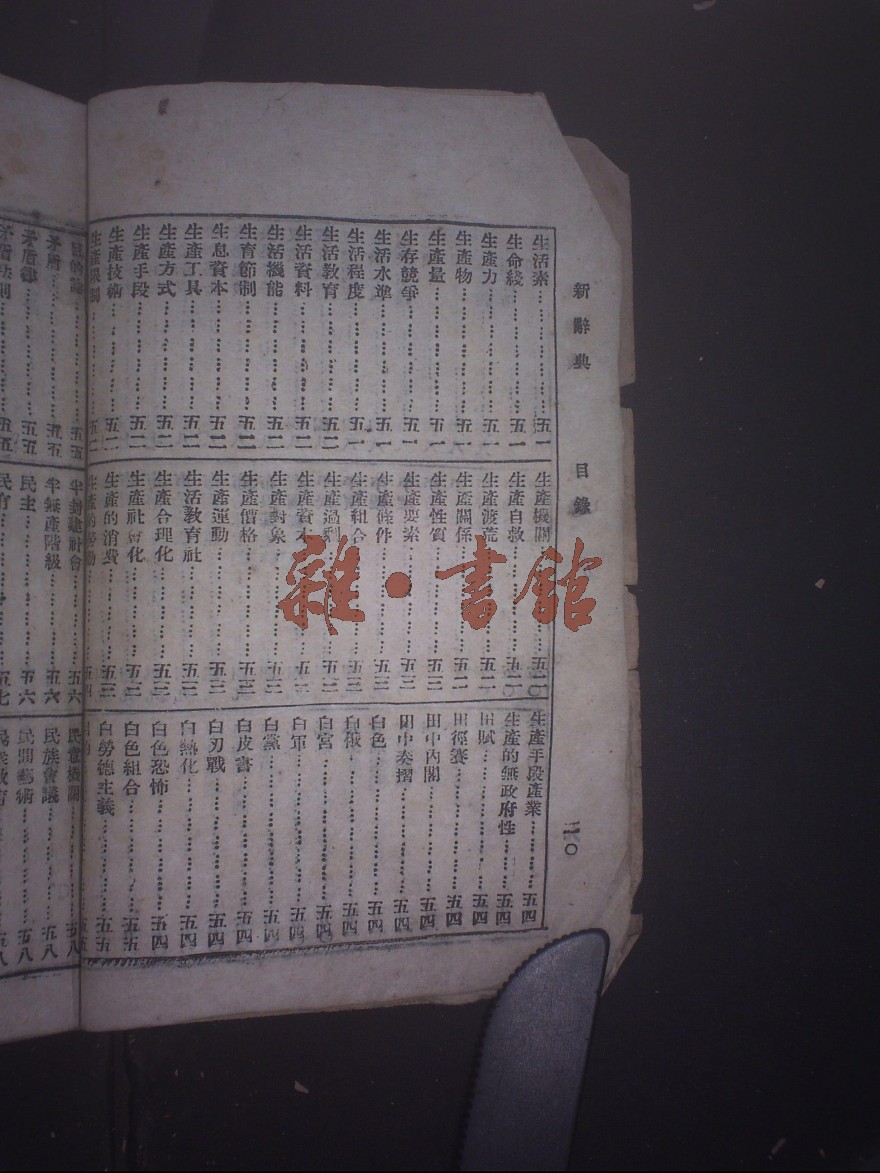 新辭典
目錄
二〇
生活素……五一
生命綫……五一
生產力……五一
生產物……五一
生產量……五一
生存競爭……五一
生活水準……五一
生活程度……五一
生活教育……五二
生活資料……五二
生活機能……五二
生育節制……五二
生息資本……五二
生產工具……五二
生產方式……五二
生產手段……五二
生產技術……五二
生產限制……五二
生產機關……五二
生產自救……五二
生產渡荒……五二
生產關係……五二
生產性質……五三
生產要素……五三
生產條件……五三
生產組合……五三
生產過剩……五三
生產資本
生產對象……五三
生產價格……五三
生產運動……五三
生活教育社……五三
生產合理化……五三
生產社會化……五三
生產的消費……五三
生產的勞動……五四
生產手段產業……五四
生產的無政府性……五四
田賦……五四
田徑賽……五四
田中內閣……五四
田中奏摺……五四
白色……五四
白俄……五四
白宮……五四
白軍……五四
白黨……五四
白皮書……五四
白刃戰……五四
白熱化……五四
白色恐怖……五四
白色組合……五五
白勞德主義……五五
目的論……五五
矛盾……五五
矛盾律……五五
矛盾法則……五五
半封建社會……五六
半無產階級……五六
民主……五六
民育……五七
民意機關……五八
民族會議……五八
民間藝術……五八
民衆教育……五八
雜·書館